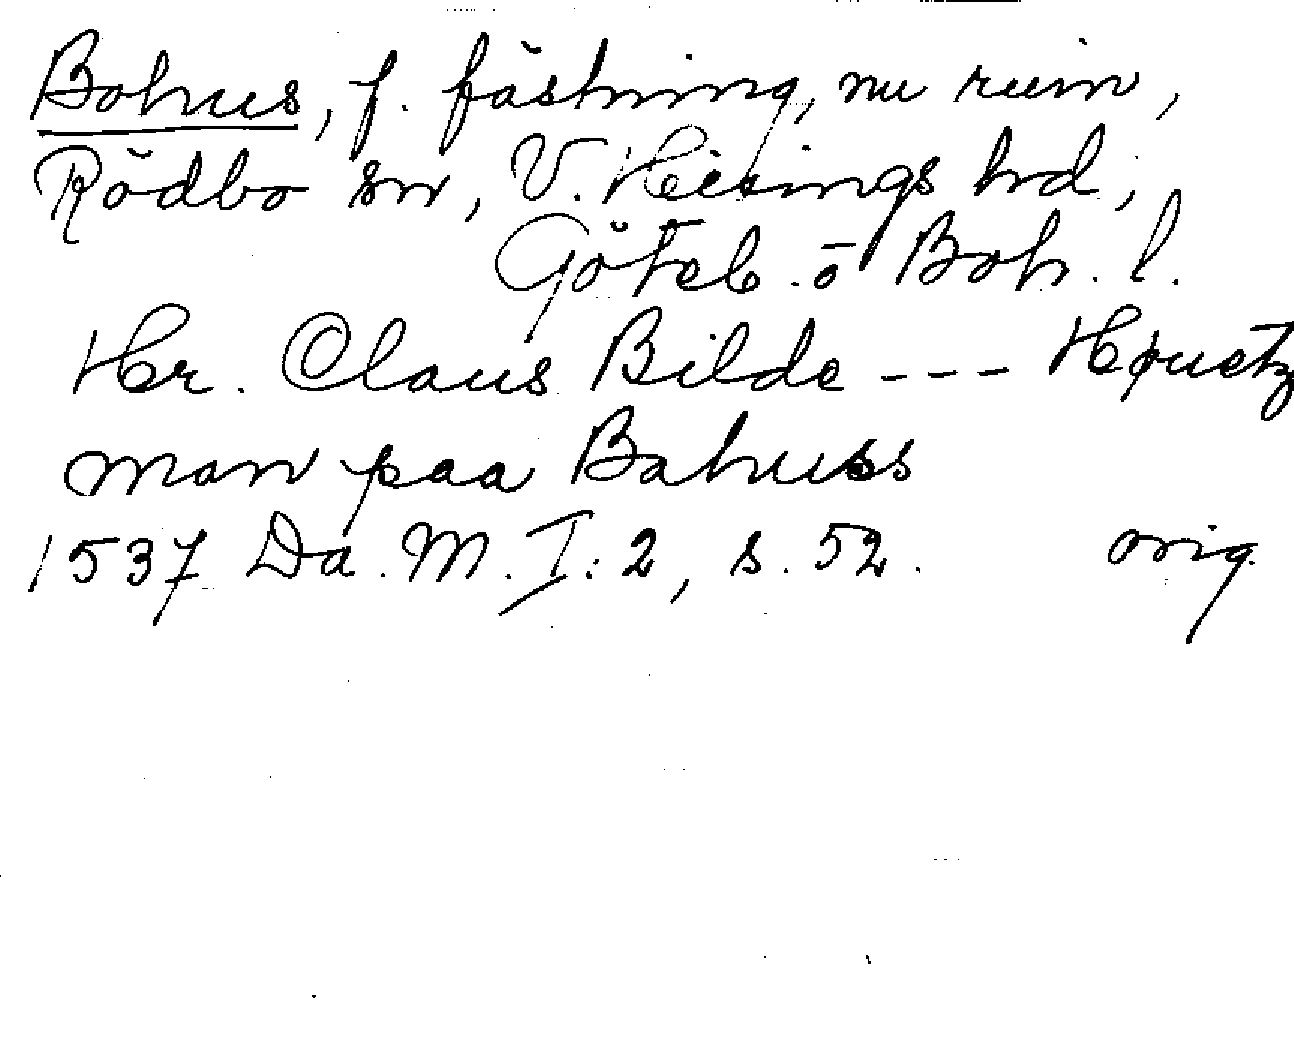 Bohus, f. fästning, nu ruin,
Rödbo sn, V. Hisings hrd,
Göteb. o Boh. l.
Her. Claus Bilde --- Høuetz
man paa Bahuss
1537 Da. M. I: 2, s. 52. orig.